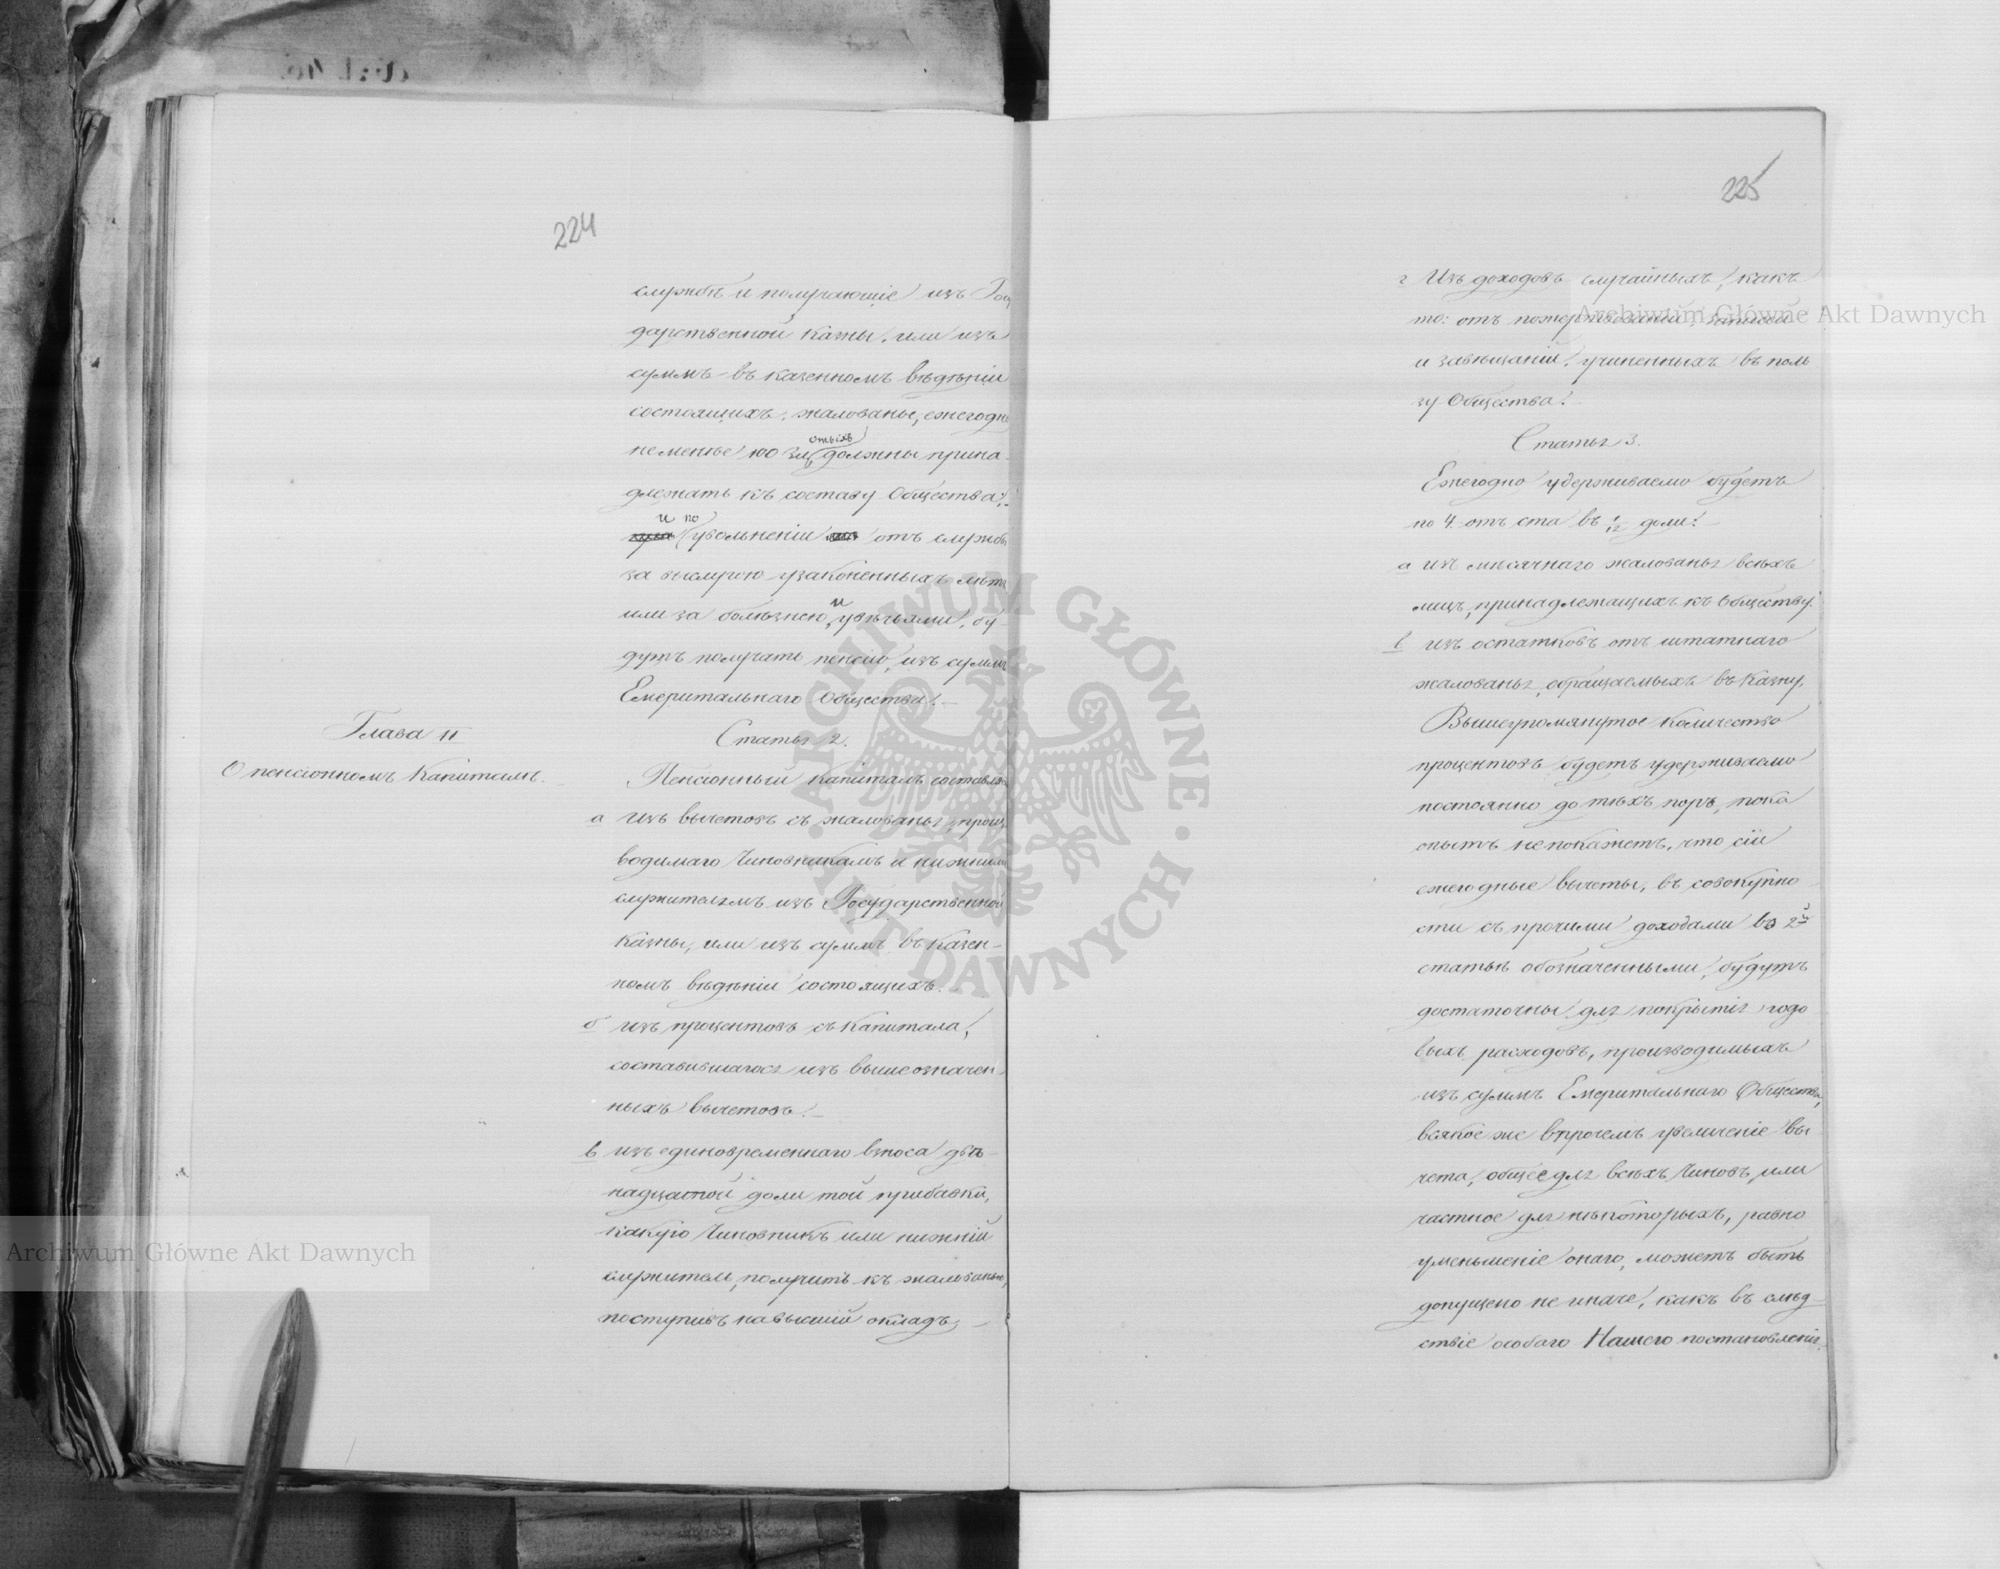 224
службѣ и получающіе изъ Госу
дарственной казны, или изъ
суммъ въ казенномъ вѣдѣніи
состоящихъ, жалованье, ежегодно
не менѣе 100 злотыхъ должны прина
длежать къ составу Общества,
и по увольненіи отъ службы
за выслугою узаконенныхъ лѣтъ
или за болѣзнею и увѣчьями, бу-
дутъ получать пенсію изъ суммъ
Емеритальнаго Общества.
Глава II
О пенсіонномъ Капиталѣ.
Статья 2.
Пенсіонный капиталъ составля
а Изъ вычетовъ съ жалованья, произ
водимаго Чиновникамъ и нижнимъ
служителямъ изъ Государственной
казны, или изъ суммъ въ казен-
номъ вѣдѣніи состоящихъ.
б изъ процентовъ съ Капитала,
составившагося изъ вышеозначен
ныхъ вычетовъ.
в изъ единовременнаго взноса двѣ-
надцатой доли той прибавки,
какую Чиновникъ или нижній
служитель, получитъ къ жалованью,
поступивъ на высшій окладъ;
225
г Изъ доходовъ случайныхъ, какъ
то: отъ пожертвованій, записей
и завѣщаній, учиненныхъ въ поль
зу Общества.
Статья 3.
Ежегодно удерживаемо будетъ
по 4 отъ ста въ 1/12 доли.
а изъ мѣсячнаго жалованья всѣхъ
лицъ, принадлежащихъ къ Обществу.
в изъ остатковъ отъ штатнаго
жалованья, обращаемыхъ въ Казну.
Вышеупомянутое количество
процентовъ будетъ удерживаемо
постоянно до тѣхъ поръ, пока
опытъ не покажетъ, что сіи
ежегодные вычеты, въ совокупно
сти съ прочими доходами во 2й
статьѣ обозначенными, будутъ
достаточны для покрытія годо
выхъ расходовъ, производимыхъ
изъ суммъ Емеритальнаго Общества,
всякое же впрочемъ увеличеніе вы
чета, общее для всѣхъ Чиновъ, или
частное для нѣкоторыхъ, равно
уменьшеніе онаго, можетъ быть
допущено не иначе, какъ въ слѣд-
ствіе особаго Нашего постановленія.
Archiwum Główne Akt Dawnych
Archiwum Główne Akt Dawnych
ARCHIWUM GŁÓWNE · AKT DAWNYCH ·